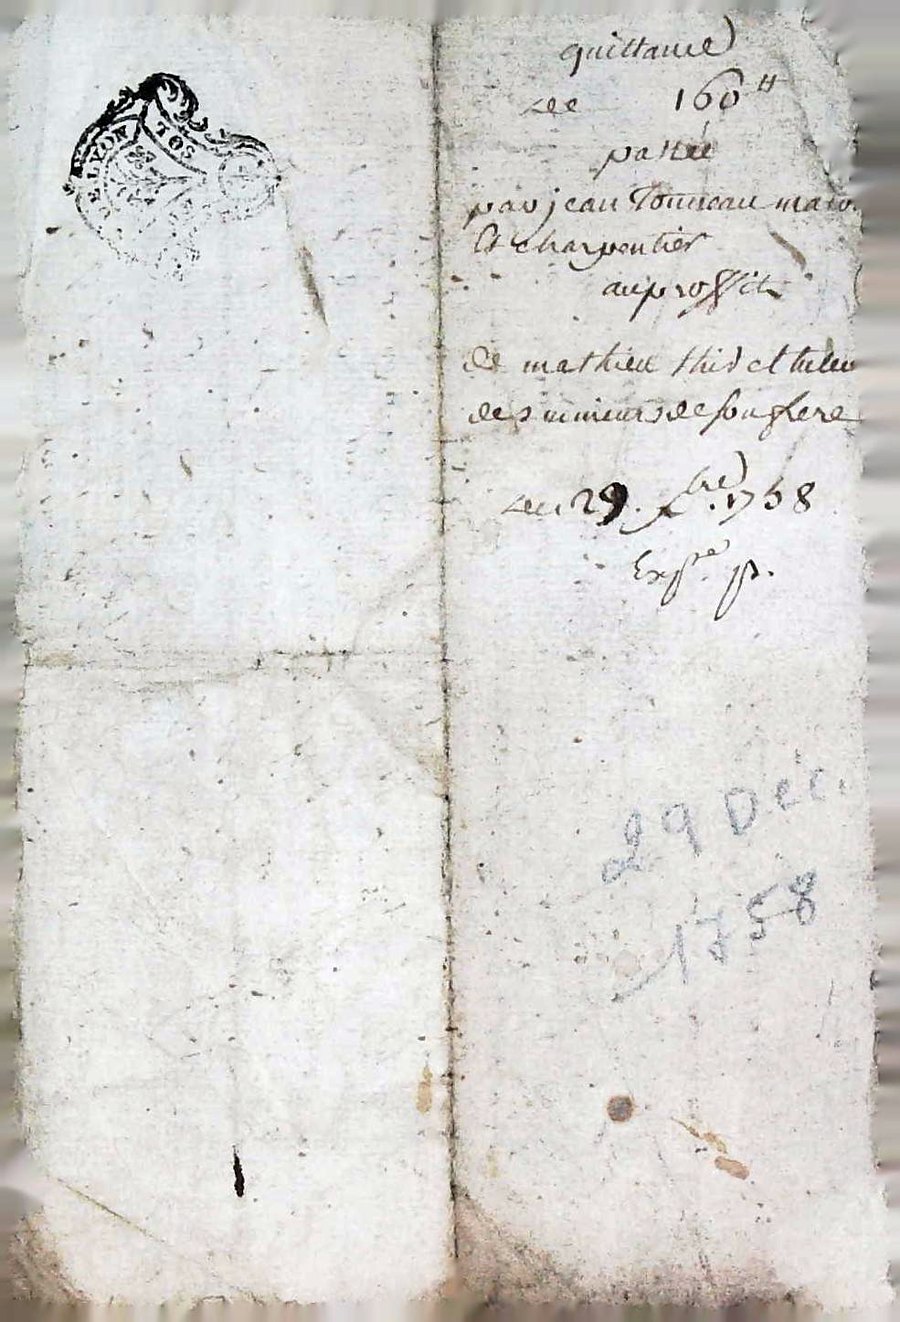 DE LYON
SOL
quittance
de 160ᴴ
passée
par jean Tonneau maçon
Et charpentier
au proffit
de mathieu thid et tuteur
des mineurs de fougere
du 29. Xbre. 1758
Expte. p.
29 Déc.
1758